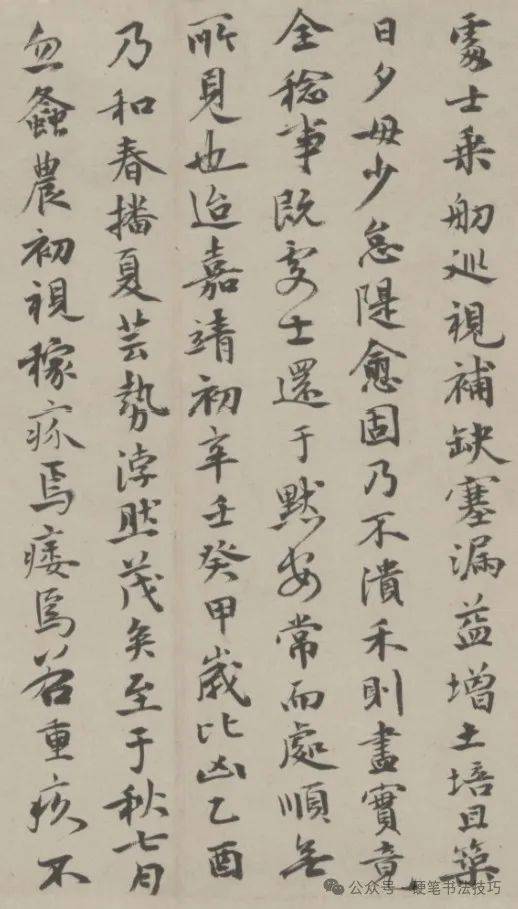 處士乘舠巡視補缺塞漏益增土培且築
日夕毋少怠隄愈固乃不潰禾則盡實竟
全稔事既處士還于默安常而處順無
所見也迨嘉靖初辛壬癸甲歲比凶乙酉
乃和春播夏芸勢浡然茂矣至于秋七月
忽螽農初視稼瘃焉痿焉若重疾不
公众号 硬笔书法技巧